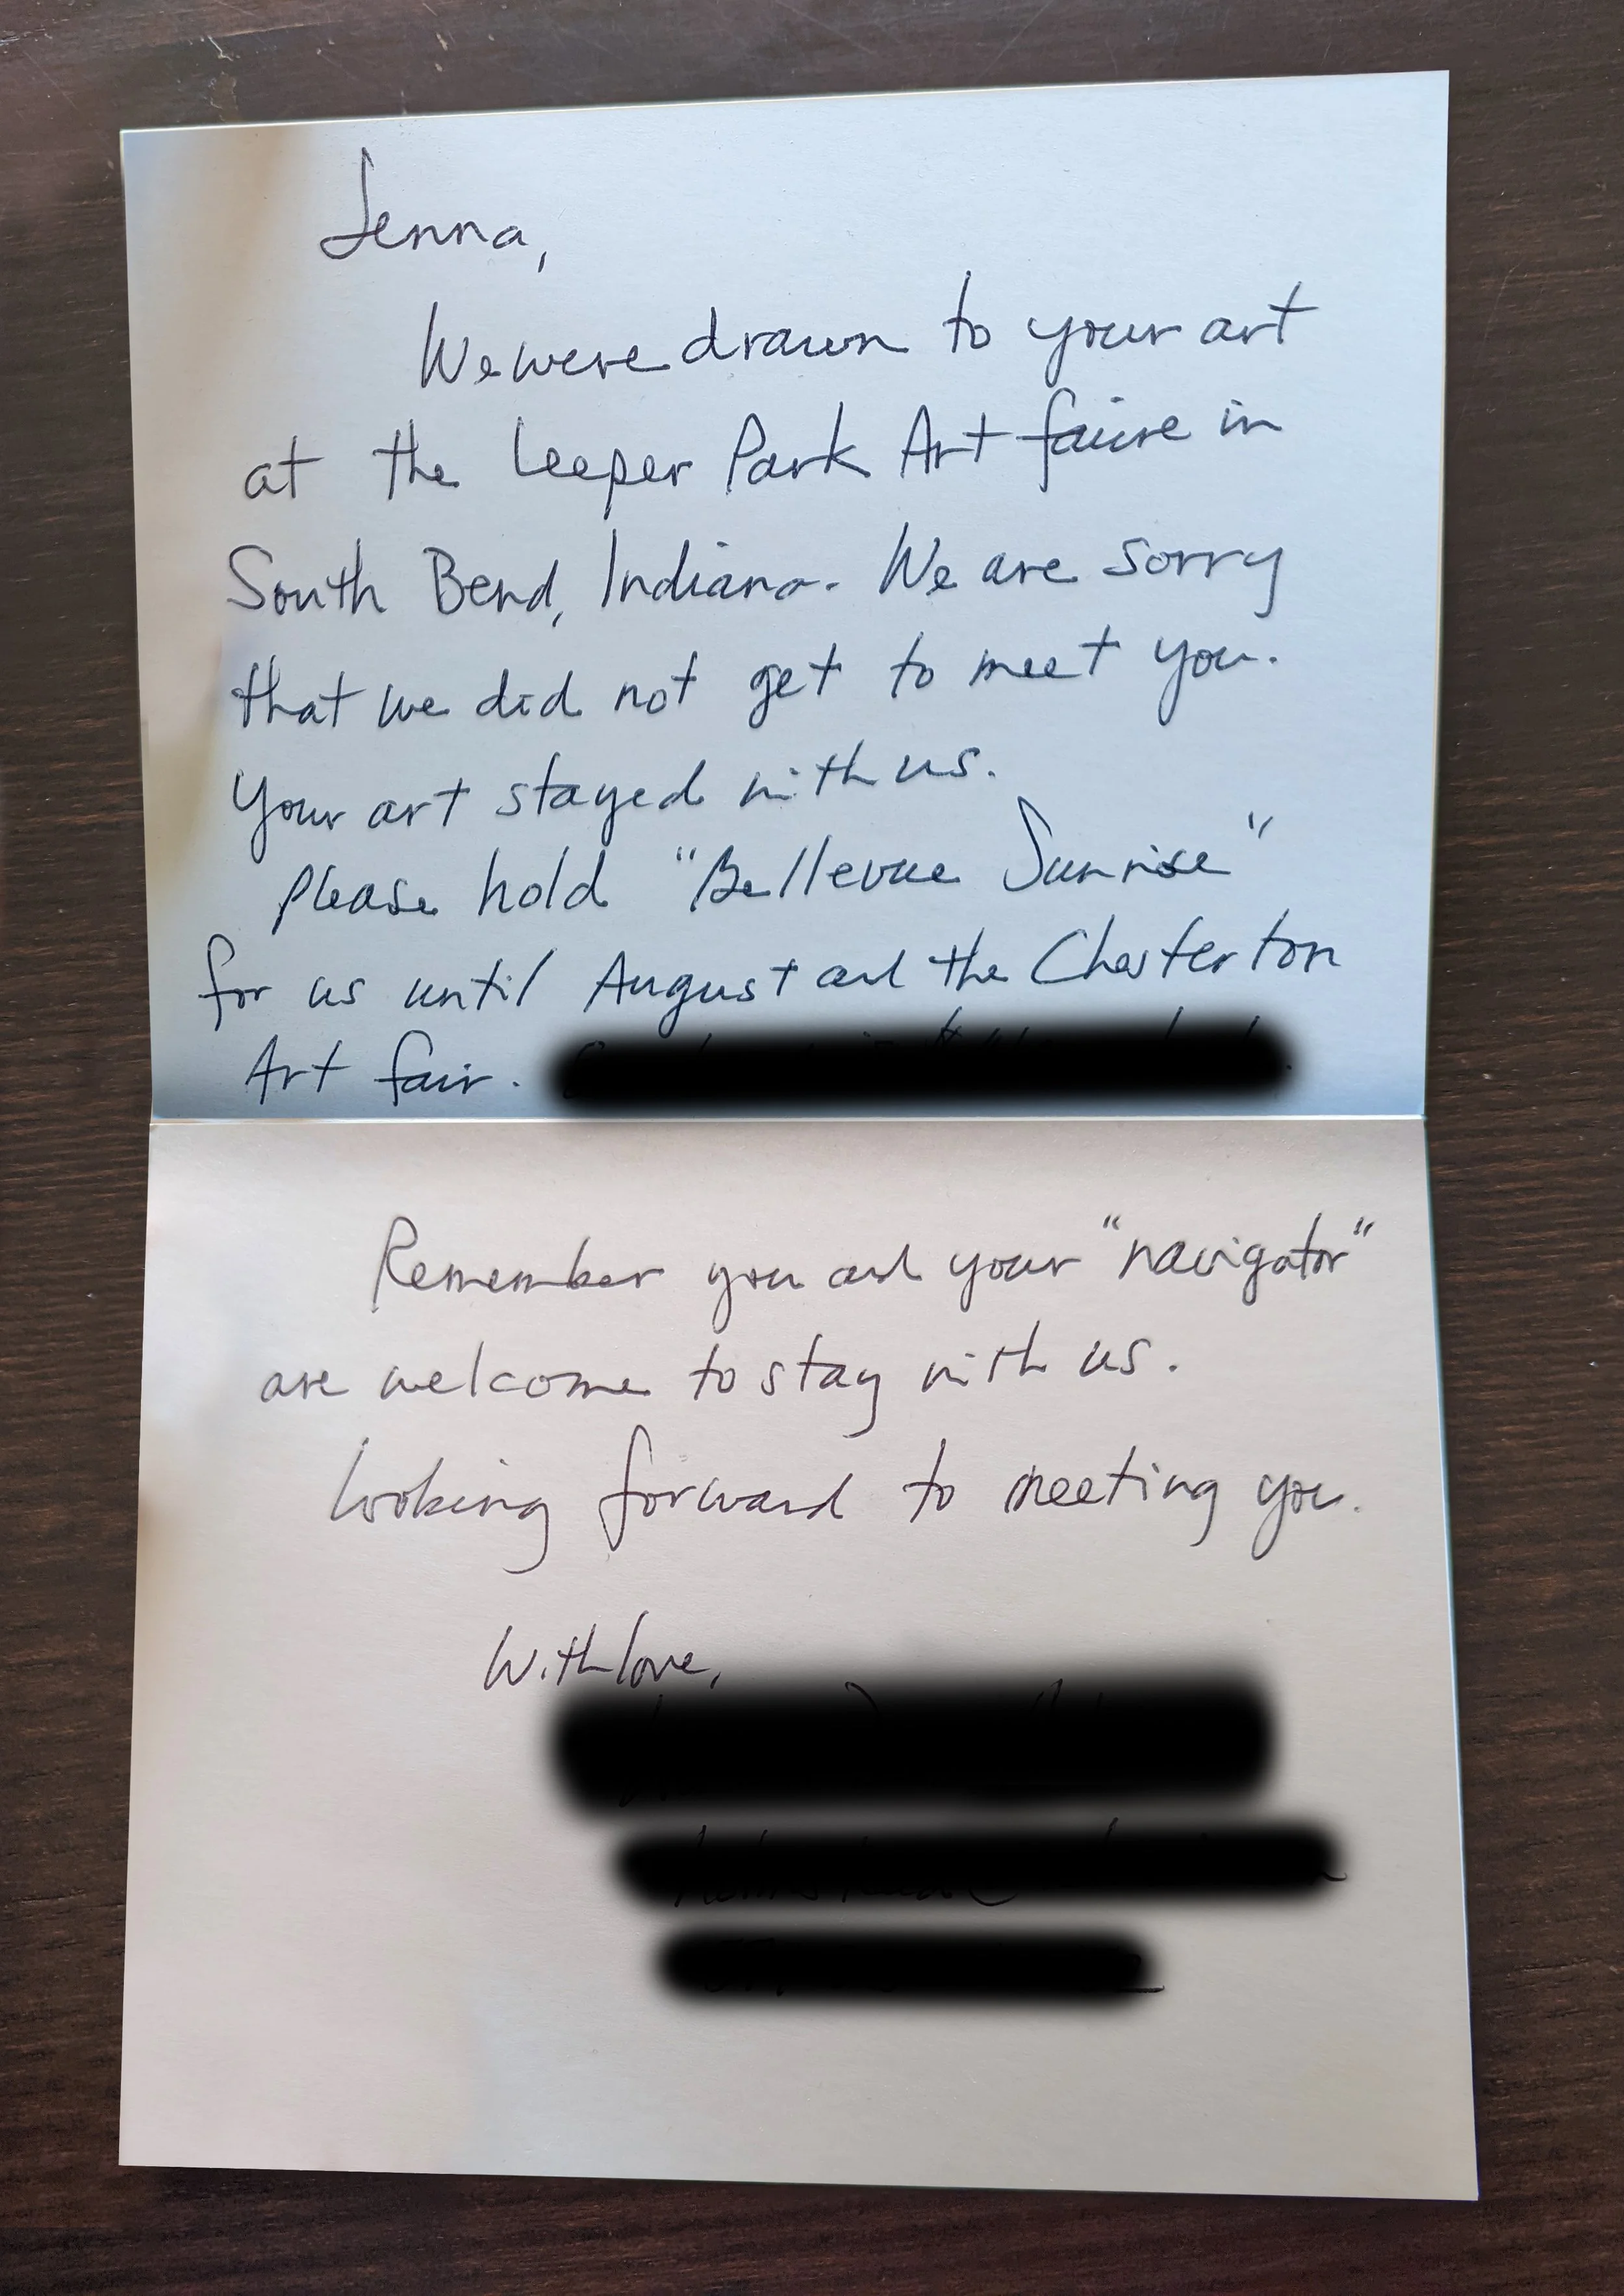 Jenna,
We were drawn to your art
at the Leeper Park Art faire in
South Bend, Indiana. We are sorry
that we did not get to meet you.
Your art stayed with us.
Please hold "Bellevue Sunrise"
for us until August and the Chesterton
Art fair.
Remember you and your "navigator"
are welcome to stay with us.
Looking forward to meeting you.
With love,